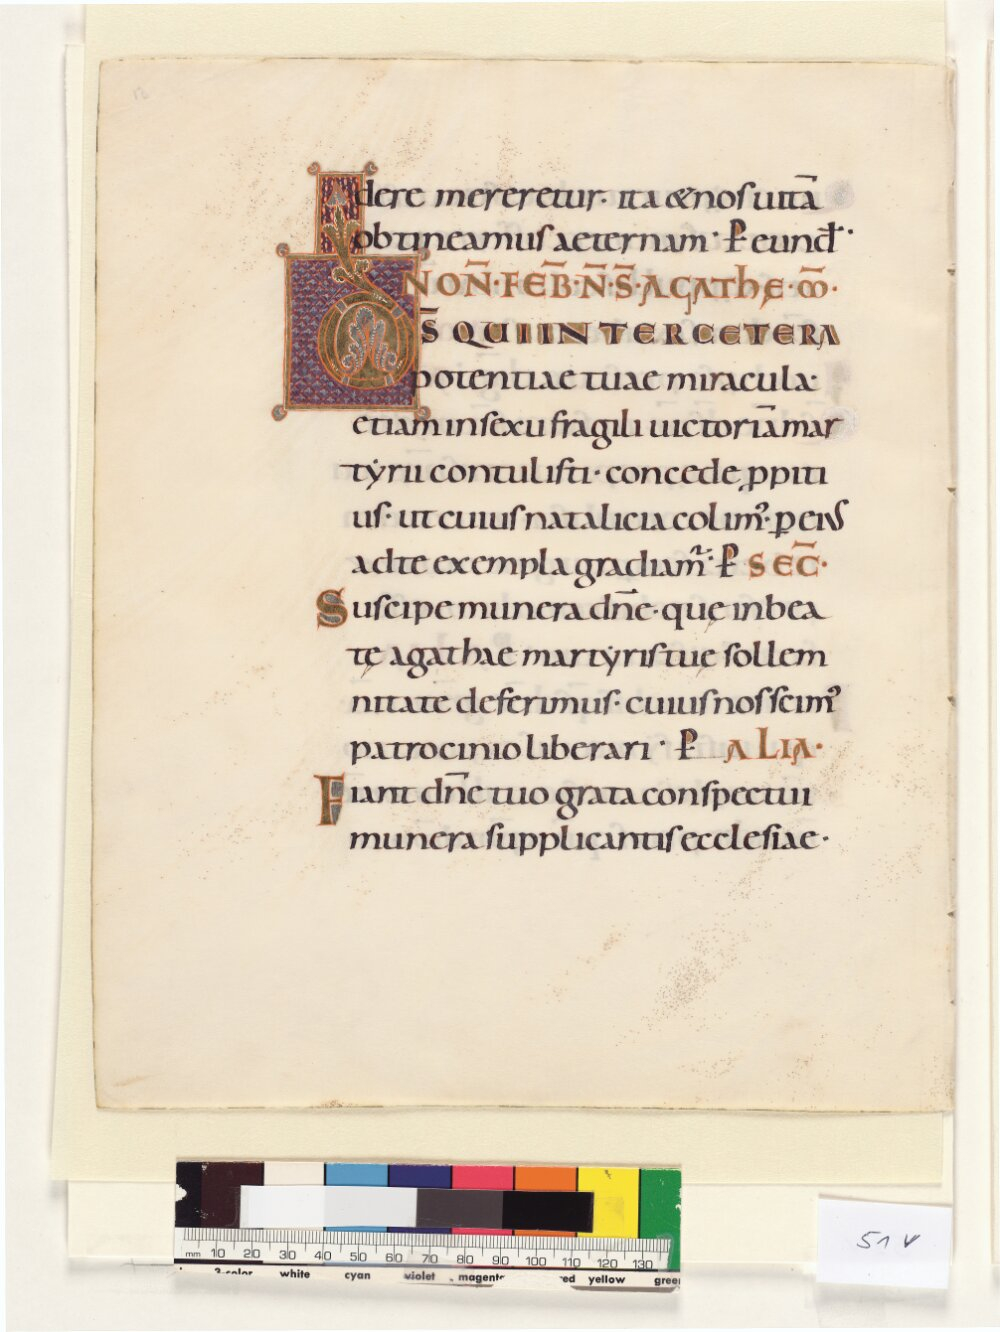 dere mereretur· ita & nos uitā
obtineamus aeternam· P̄ eund̄·
NON̄·FEB̄·N̄·S̄·AGATHĘ·M̄·
D S̄ QUI INTER CETERA
potentiae tuae miracula·
etiam in sexu fragili uictoriā mar
tẏrii contulisti· concede ꝓpiti
us· ut cuius natalicia colimꝰ· ꝑ eius
ad te exempla gradiam̃· P̄ SEC̄·
Suscipe munera dn̄e· quę in bea
tę agathae martẏris tuę sollem
nitate deferimus· cuius nos scimꝰ
patrocinio liberari· P̄ ALIA·
Fiant dn̄e tuo grata conspectui
munera supplicantis ecclesiae·
mm 10 20 30 40 50 60 70 80 90 100 110 120 130
3-color white cyan violet magenta red yellow green
51 v